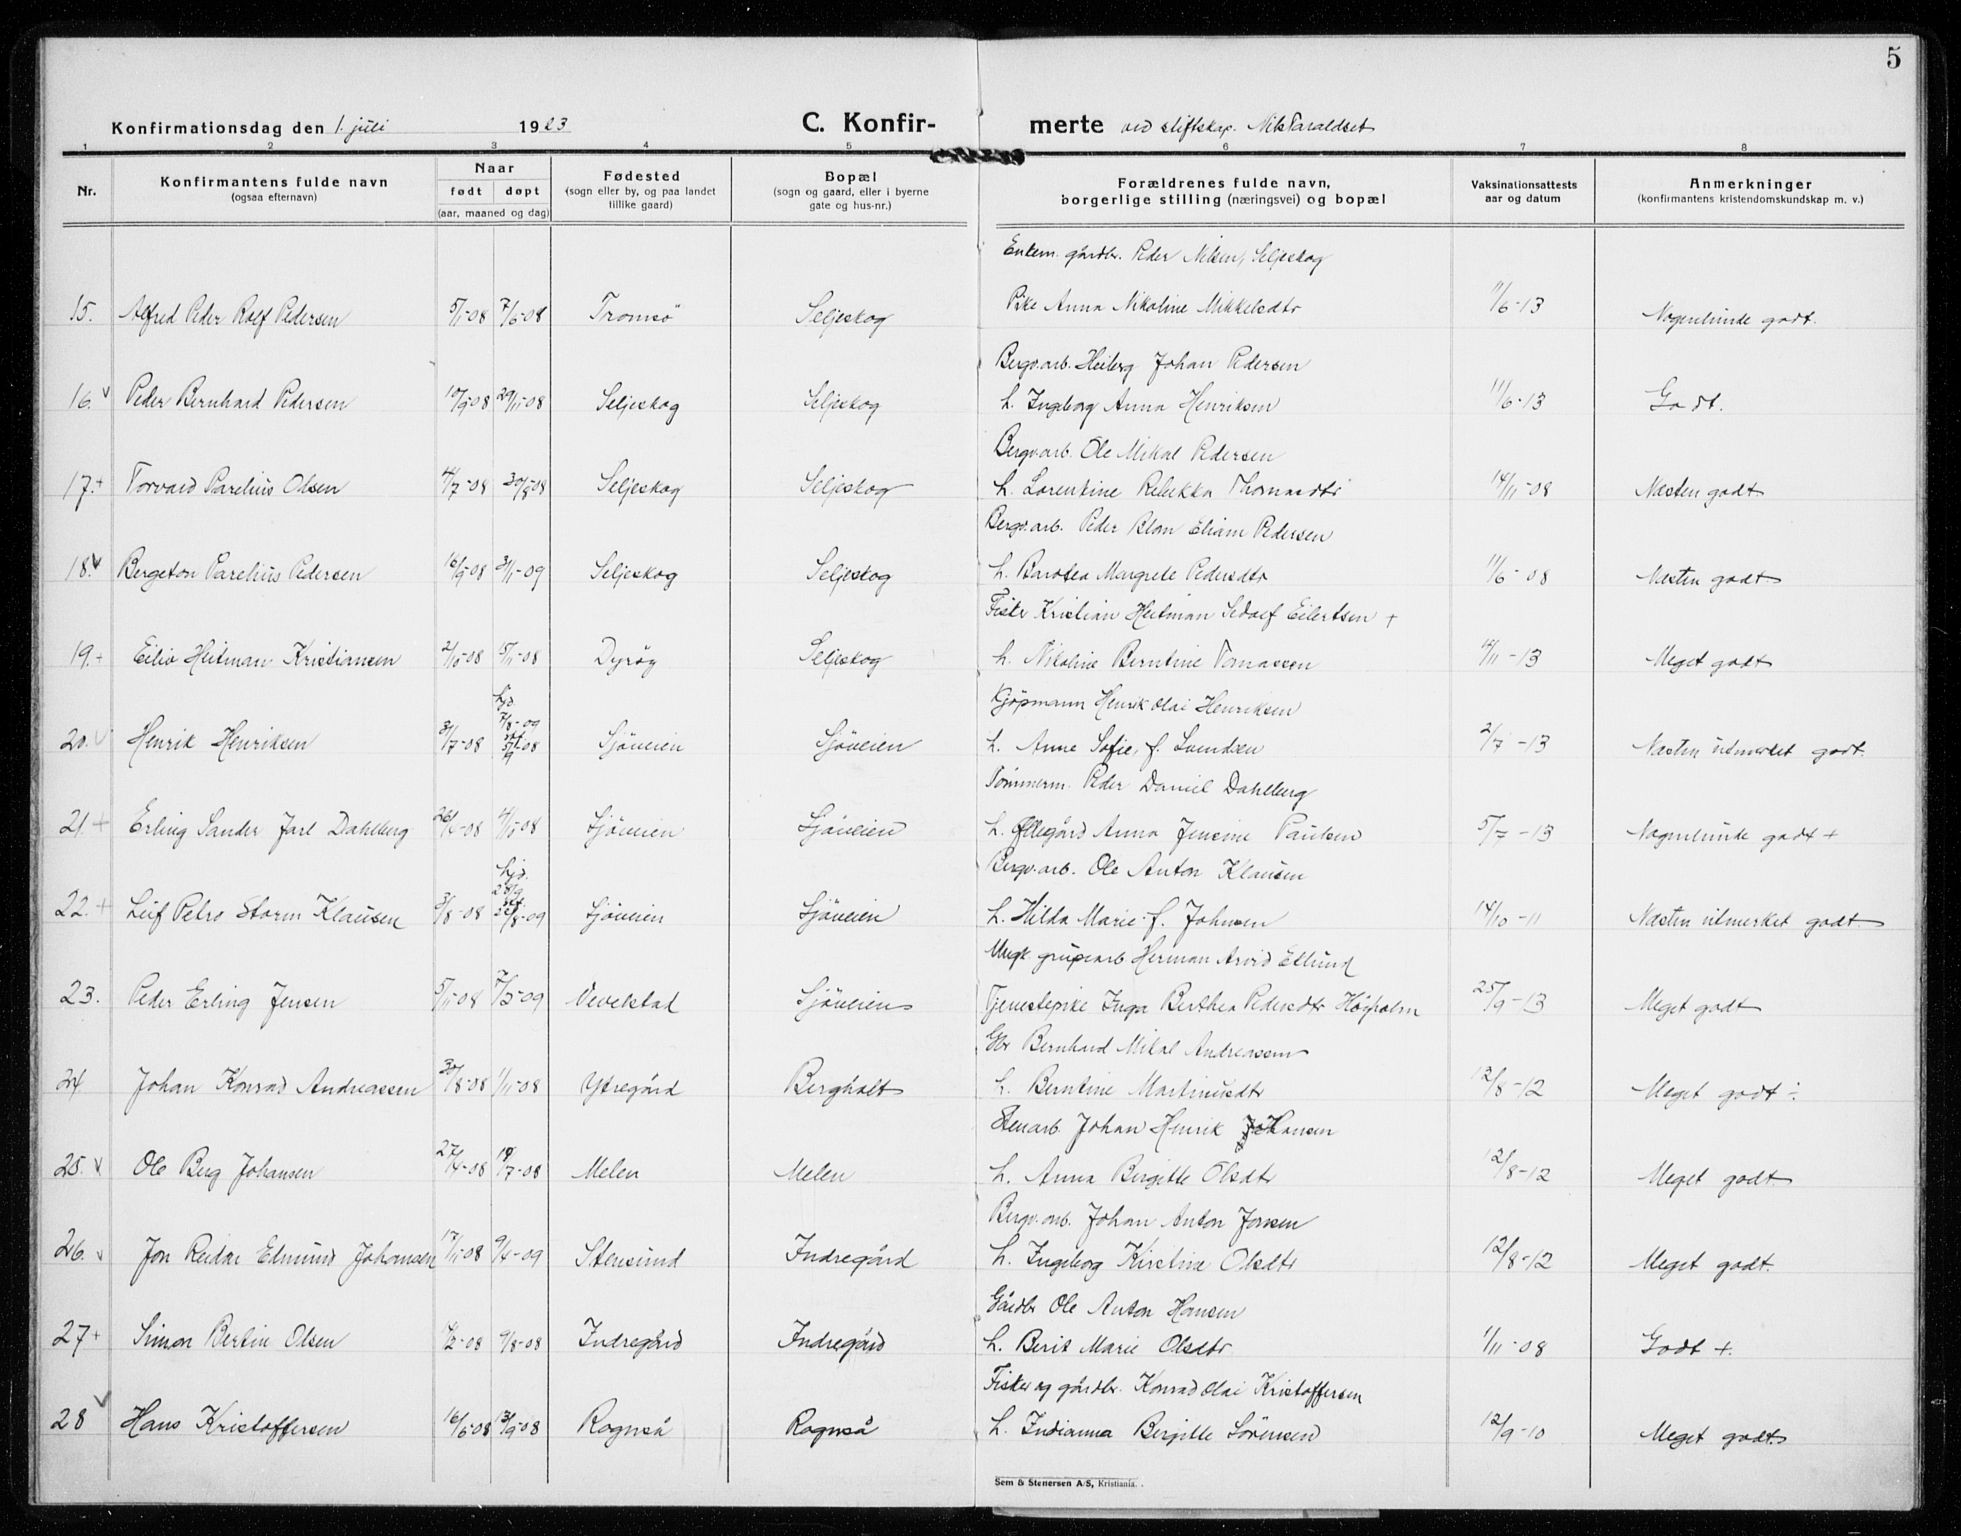 5
Konfirmationsdag den 1. juli 1923 C. Konfir- merte ved stiftskap. Nils Paraldset
1 2 3 4 5 6 7 8
Nr. Konfirmantens fulde navn (ogsaa efternavn) Naar født døpt (aar, maaned og dag) Fødested (sogn eller by, og paa landet tillike gaard) Bopæl (sogn og gaard, eller i byerne gate og hus-nr.) Forældrenes fulde navn, borgerlige stilling (næringsvei) og bopæl Vaksinationsattests aar og datum Anmerkninger (konfirmantens kristendomskundskap m. v.)
Enkem. gårdbr. Peder Nilsen, Seljeskog
15. Alfred Peder Rolf Pedersen 5/1-08 7/6-08 Tromsö Seljeskog Pike Anna Nikoline Mikkelsdtr 11/6-13 Nogenlunde godt.
Bergv.arb. Heiberg Johan Pedersen
16. v Peder Bernhard Pedersen 10/9-08 29/11-08 Seljeskog Seljeskog h. Ingeborg Anna Henriksen 11/6-13 Godt.
Bergv.arb. Ole Mikal Pedersen
17. + Torvard Parelius Olsen 4/7-08 30/8-08 Seljeskog Seljeskog h. Lorentine Rebekka Thomasdtr 14/11-08 Næsten godt
Bergv.arb. Peder Blom Eliam Pedersen
18. v Bergeton Parelius Pedersen 16/9-08 3/1-09 Seljeskog Seljeskog h. Barotea Margrete Pedersdtr 11/6-08 Næsten godt
Fisker Kristian Heitman Sedolf Eilertsen +
19. + Eiliv Heitman Kristiansen 2/10-08 5/11-08 Dyröy Seljeskog h. Nikoline Berntine Tomassen 4/11-13 Meget godt
Kjöpmann Henrik Olai Henriksen
hjd. 7/8-09
20. v Henrik Henriksen 31/7-08 Sjöveien Sjöveien h. Anne Sofie f. Svendsen 2/7-13 Næsten utmerket godt.
Tömmerm. Peder Daniel Dahlberg
21. + Erling Sander Jarl Dahlberg 26/1-08 4/5-08 Sjöveien Sjöveien h. Ellegård Anna Jensine Paulsen 5/7-13 Nogenlunde godt +
Bergv.arb. Ole Anton Klausen
hjd. 28/9
22. + Leif Petro Storm Klausen 3/8-08 22/8-09 Sjöveien Sjöveien h. Hilda Marie f. Johnsen 14/10-11 Næsten utmerket godt.
Ungk. grubearb Herman Arvid Edlund
23. Peder Erling Jensen 5/11-08 7/3-09 Vevelstad Sjöveien Tjenestepike Inga Berthea Pedersdtr Högholm 25/9-13 Meget godt
Gbr Bernhard Mikal Andreassen
24 Johan Konrad Andreassen 30/8-08 1/11-08 Ytregård Bergholt h. Berntine Martinusdtr 12/8-12 Meget godt ÷
Stenarb. Johan Henrik Johansen
25. v Ole Berg Johansen 27/4-08 19/7-08 Melen Melen h. Anna Birgitte Olsdtr 12/8-12 Meget godt
Bergv.arb. Johan Anton Jonsen
26. v Jon Reidar Edmund Johansen 17/11-08 9/4-09 Stensund Indregård h. Ingeborg Kirstine Olsdtr 12/8-12 Meget godt.
Gårdbr Ole Anton Hansen
27 + Simon Bertin Olsen 7/2-08 9/8-08 Indregård Indregård h. Berit Marie Olsdtr 1/11-08 Godt +.
Fisker og gårdbr. Konrad Olai Kristoffersen
28 v Hans Kristoffersen 16/6-08 13/9-08 Rognså Rognså h. Indianna Bergitte Sörensen 12/9-10 Meget godt.
Sem & Stenersen A/S, Kristiania.